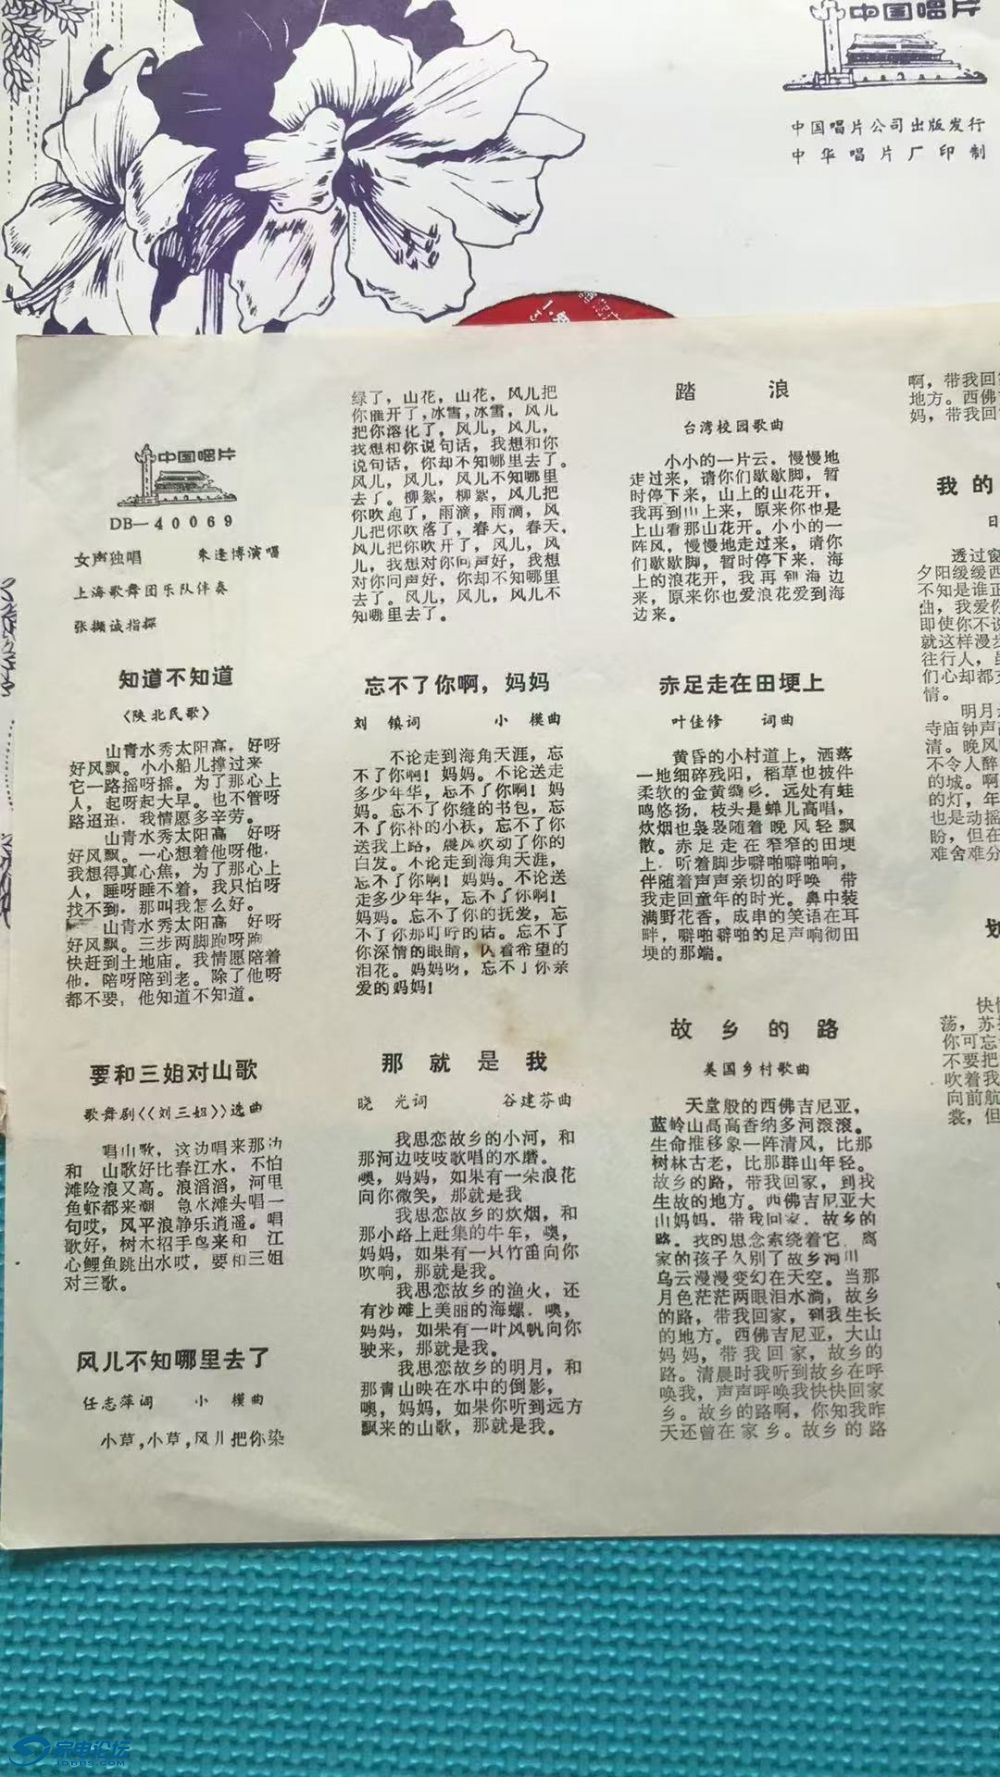 中国唱片
中国唱片公司出版发行
中华唱片厂印制
中国唱片
DB—40069
女声独唱 朱逢博演唱
上海歌舞团乐队伴奏
张撷诚指挥
知道不知道
〈陕北民歌〉
山青水秀太阳高，好呀
好风飘。小小船儿撑过来
它一路摇呀摇。为了那心上
人，起呀起大早。也不管呀
路迢迢，我情愿多辛劳。
山青水秀太阳高 好呀
好风飘。一心想着他呀他，
我想得真心焦，为了那心上
人，睡呀睡不着，我只怕呀
找不到，那叫我怎么好。
山青水秀太阳高 好呀
好风飘。三步两脚跑呀跑
快赶到土地庙。我情愿陪着
他，陪呀陪到老。除了他呀
都不要，他知道不知道。
要和三姐对山歌
歌舞剧《〈刘三姐》〉选曲
唱山歌，这边唱来那边
和 山歌好比春江水，不怕
滩险浪又高。浪滔滔，河里
鱼虾都来潮 急水滩头唱一
句哎，风平浪静乐逍遥。唱
歌好，树木招手鸟来和 江
心鲤鱼跳出水哎，要和三姐
对三歌。
风儿不知哪里去了
任志萍词 小 模曲
小草，小草，风儿把你染
绿了，山花，山花，风儿把
你催开了，冰雪，冰雪，风儿
把你溶化了，风儿，风儿，
我想和你说句话，我想和你
说句话，你却不知哪里去了。
风儿，风儿，风儿不知哪里
去了。柳絮，柳絮，风儿把
你吹跑了，雨滴，雨滴，风
儿把你吹落了，春天，春天，
风儿把你吹开了，风儿，风
儿，我想对你问声好，我想
对你问声好，你却不知哪里
去了。风儿，风儿，风儿不
知哪里去了。
忘不了你啊，妈妈
刘 镇词 小 模曲
不论走到海角天涯，忘
不了你啊！妈妈。不论送走
多少年华，忘不了你啊！妈
妈。忘不了你缝的书包，忘
不了你补的小袄，忘不了你
送我上路，晨风吹动了你的
白发。不论走到海角天涯，
忘不了你啊！妈妈。不论送
走多少年华，忘不了你啊！
妈妈。忘不了你的抚爱，忘
不了你那叮咛的话。忘不了
你深情的眼睛，闪着希望的
泪花。妈妈呀，忘不了你亲
爱的妈妈！
那就是我
晓 光词 谷建芬曲
我思恋故乡的小河，和
那河边吱吱歌唱的水磨。
噢，妈妈，如果有一朵浪花
向你微笑，那就是我
我思恋故乡的炊烟，和
那小路上赶集的牛车，噢，
妈妈，如果有一只竹笛向你
吹响，那就是我。
我思恋故乡的渔火，还
有沙滩上美丽的海螺．噢，
妈妈，如果有一叶风帆向你
驶来，那就是我。
我思恋故乡的明月，和
那青山映在水中的倒影，
噢，妈妈，如果你听到远方
飘来的山歌，那就是我。
踏 浪
台湾校园歌曲
小小的一片云．慢慢地
走过来，请你们歇歇脚，暂
时停下来，山上的山花开，
我再到山上来，原来你也是
上山看那山花开。小小的一
阵风，慢慢地走过来，请你
们歇歇脚，暂时停下来．海
上的浪花开，我再到海边
来，原来你也爱浪花爱到海
边来。
赤足走在田埂上
叶佳修 词曲
黄昏的小村道上，洒落
一地细碎残阳，稻草也披件
柔软的金黄绸衫．远处有蛙
鸣悠扬，枝头是蝉儿高唱，
炊烟也袅袅随着晚风轻飘
散。赤足走在窄窄的田埂
上．听着脚步噼啪噼啪响，
伴随着声声亲切的呼唤 带
我走回童年的时光。鼻中装
满野花香，成串的笑语在耳
畔，噼啪噼啪的足声响彻田
埂的那端。
故乡的路
美国乡村歌曲
天堂般的西佛吉尼亚，
蓝岭山高高香纳多河滚滚。
生命推移象一阵清风，比那
树林古老，比那群山年轻。
故乡的路，带我回家，到我
生故的地方。西佛吉尼亚大
山妈妈．带我回家．故乡的
路．我的思念萦绕着它．离
家的孩子久别了故乡河川
乌云漫漫变幻在天空。当那
月色茫茫两眼泪水淌，故乡
的路，带我回家，到我生长
的地方。西佛吉尼亚，大山
妈妈，带我回家，故乡的
路。清晨时我听到故乡在呼
唤我，声声呼唤我快快回家
乡。故乡的路啊，你知我昨
天还曾在家乡。故乡的路
啊，带我回
地方。西佛
妈，带我回
我的
日
透过窗
夕阳缓缓西
不知是谁正
曲，我爱你
即使你不说
就这样漫步
往行人，
们心却都
情。
明月
寺庙钟声
清。晚风
不令人醉
的城。啊
的灯，年
也是动摇
盼，但在
难舍难分
划
快
荡，苏
你可忘
不要把
吹着我
向前航
裳，但
家电论坛
JDBBS.COM